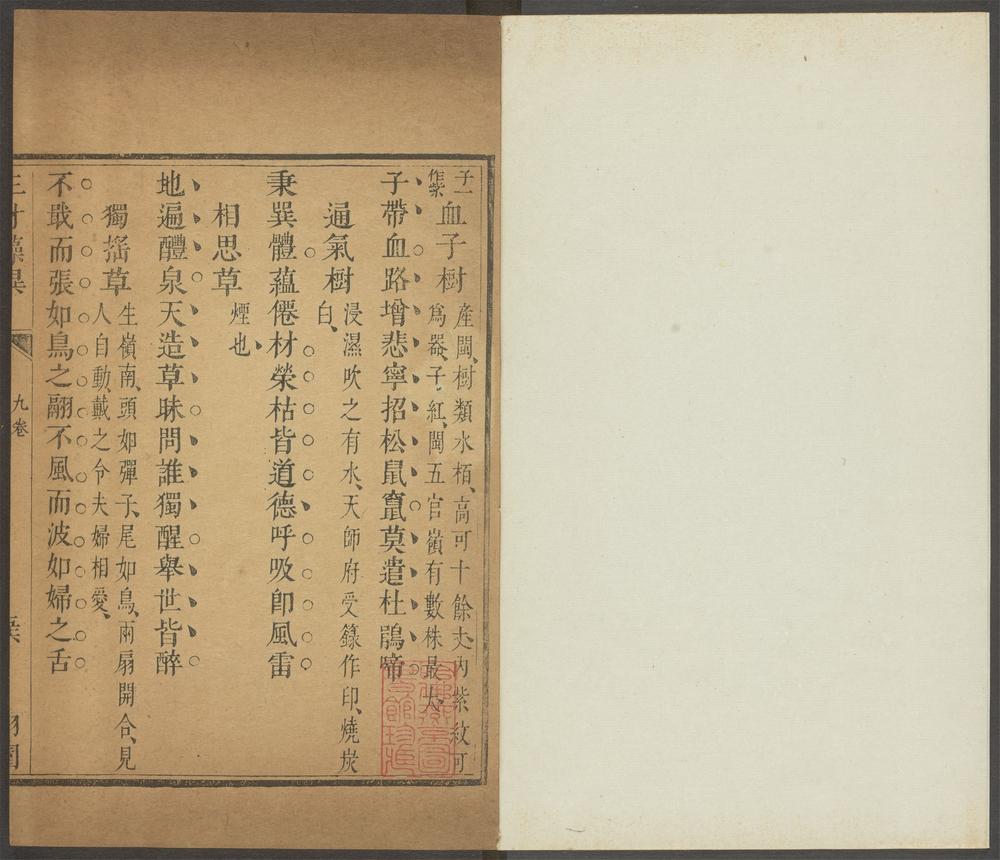 血子樹 子一作紫 產閩、樹類水栢、高可十餘丈、內紫紋可
爲器、子紅、閩五官嶺有數株最大、
子帶血路增悲寧招松鼠竄莫遣杜鵑啼
通氣樹 浸濕吹之有水、天師府受籙作印、燒炭
白、
秉巽體蘊僊材榮枯皆道德呼吸卽風雷
相思草 煙也、
地遍醴泉天造草昧問誰獨醒舉世皆醉
獨搖草 生嶺南、頭如彈子、尾如鳥、兩扇開合、見
人自動、戴之令夫婦相愛、
不戢而張如鳥之翮不風而波如婦之舌
九卷